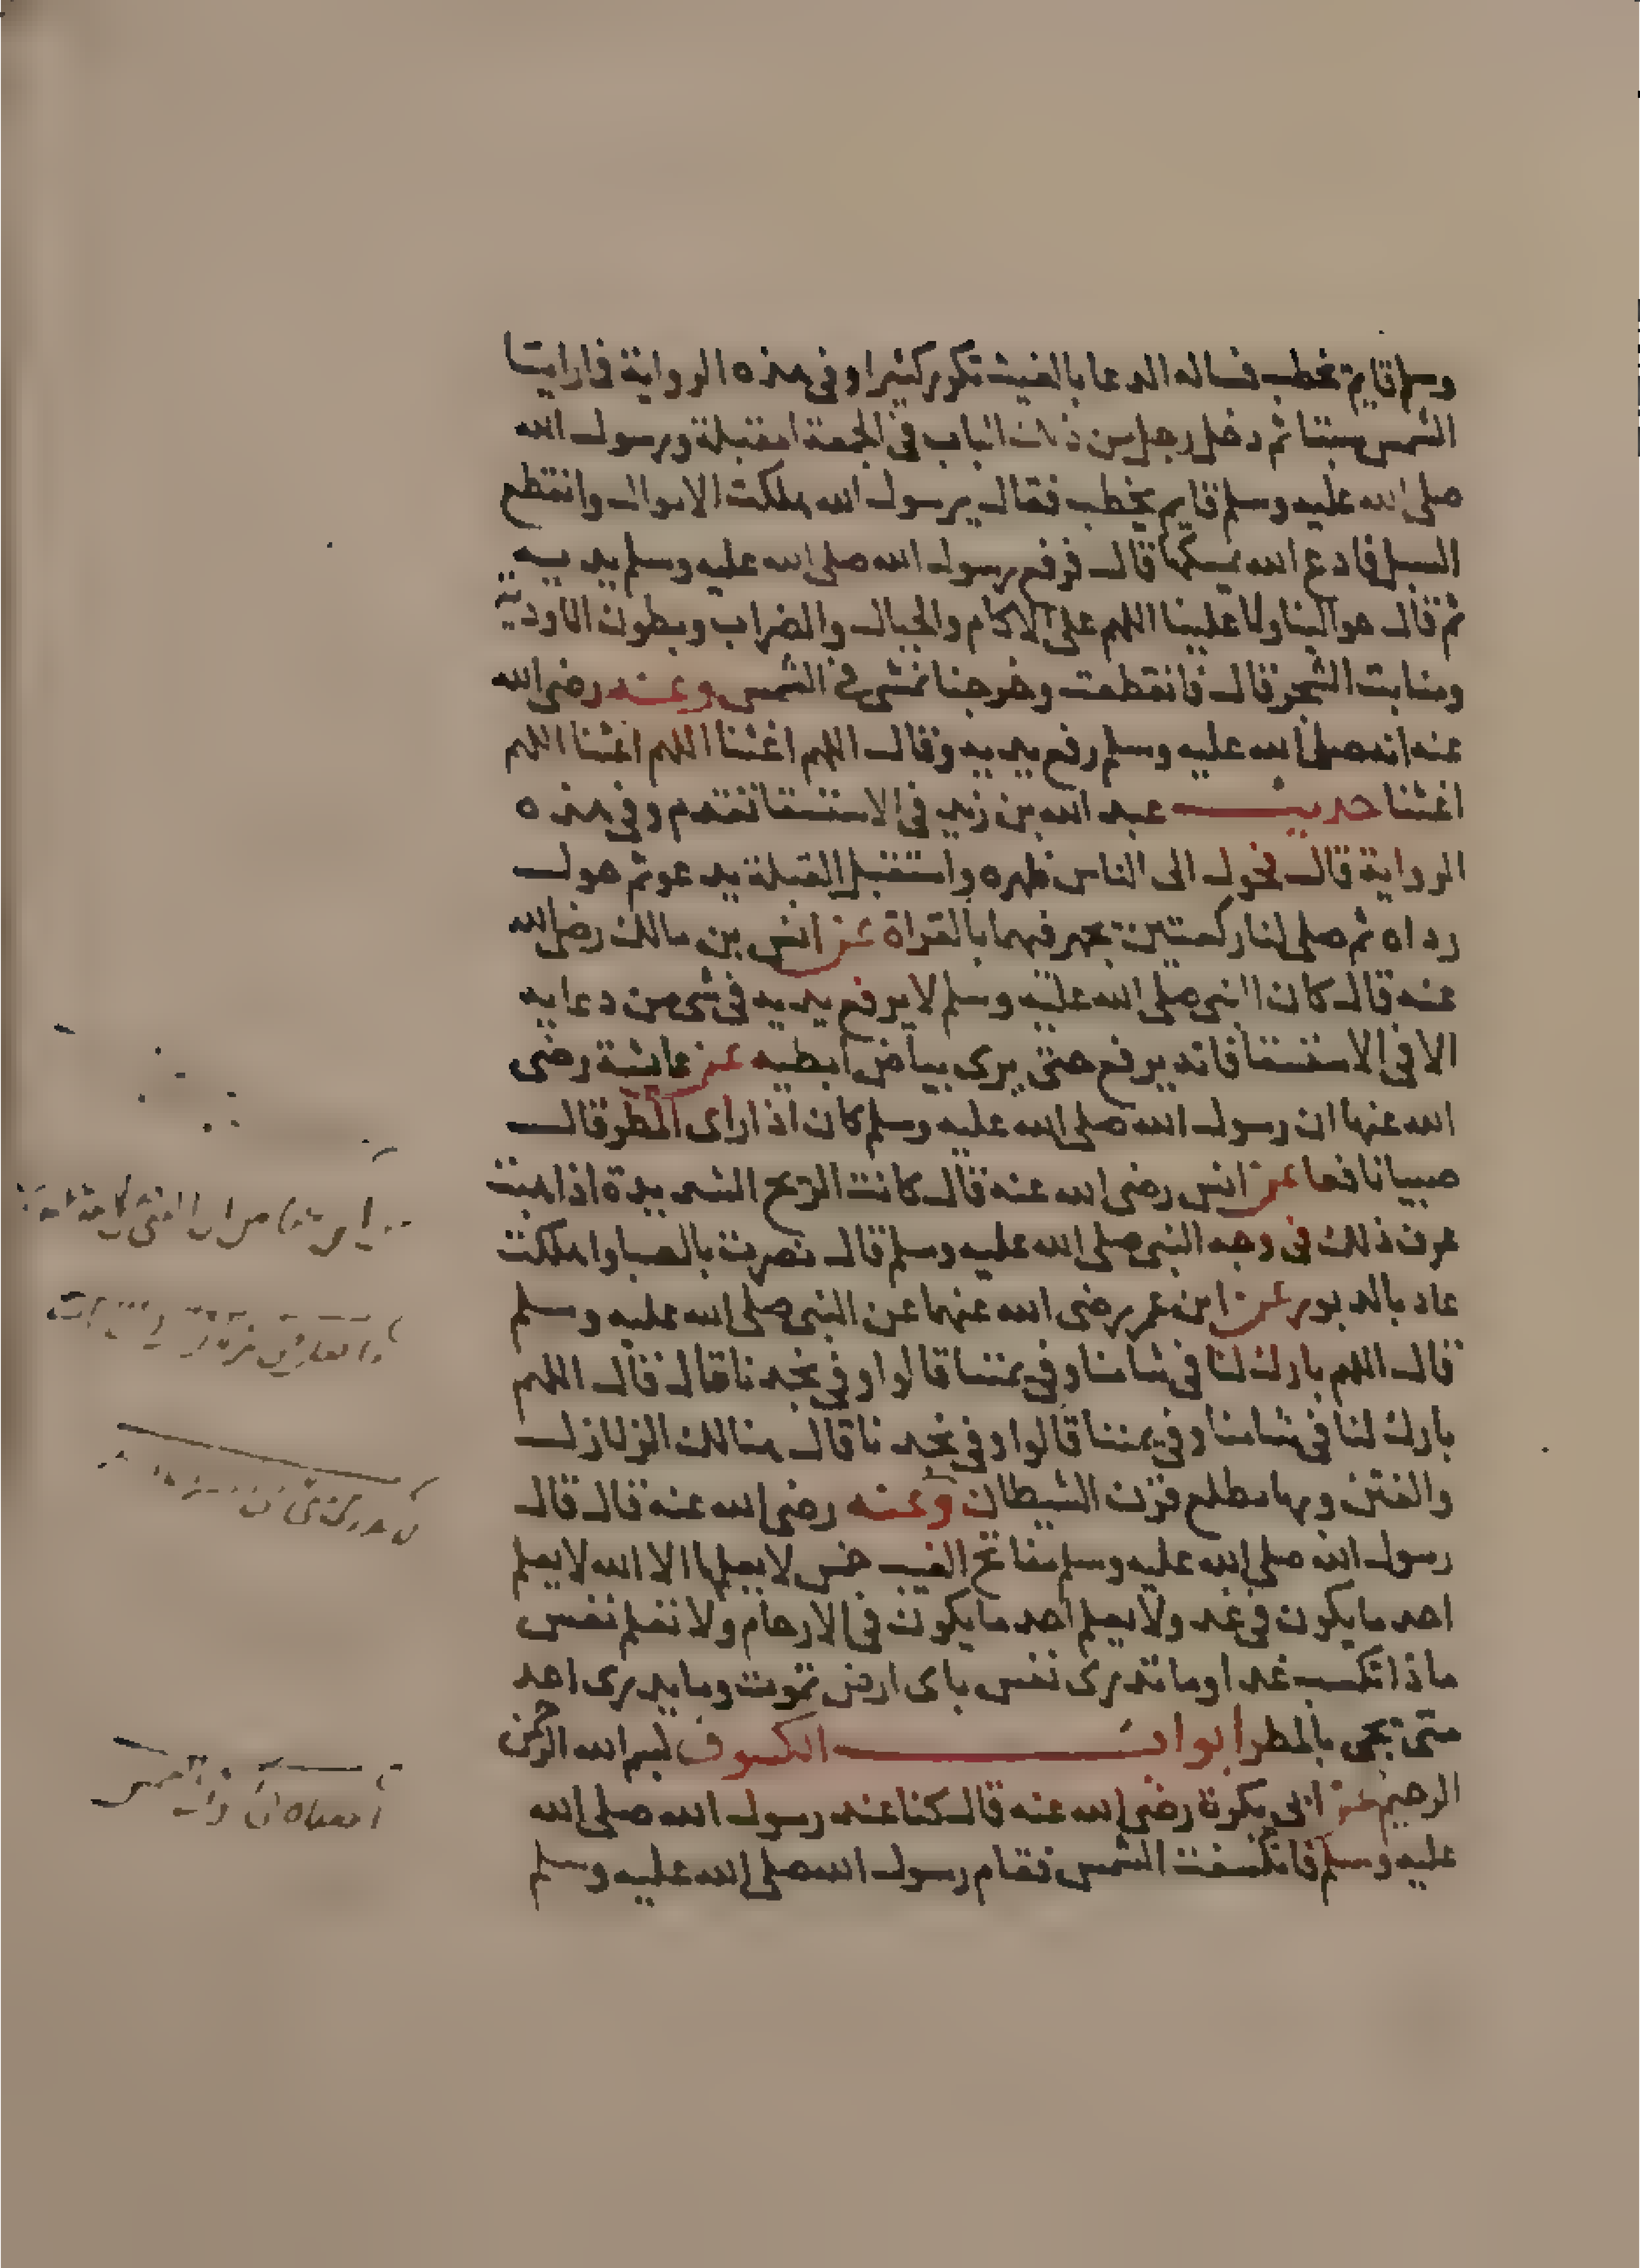 وسلم قايم يخطب فساله الدعا بالغيث تكرر كثيرا وفي هذه الرواية فما راينا
الشمس سبتا ثم دخل رجل من ذلك الباب في الجمعة المقبلة ورسول الله
صلى الله عليه وسلم قايم يخطب فقال يرسول الله هلكت الاموال وانقطع
السبل فادع الله يمسكها قال فرفع رسول الله صلى الله عليه وسلم يديه
ثم قال حوالينا ولا علينا اللهم على الاكام والجبال والضراب وبطون الاودية
ومنابت الشجر قال فانقطعت وخرجنا نمشي في الشمس وعنه رضي الله
عنه انه صلى الله عليه وسلم رفع يديه وقال اللهم اغثنا اللهم اغثنا اللهم
اغثنا حديث عبد الله بن زيد في الاستسقا تقدم وفي هذه
الرواية قال فحول الى الناس ظهره واستقبل القبلة يدعو ثم حول
رداه ثم صلى لنا ركعتين يجهر فيهما بالقراة عن انس بن مالك رضي الله
عنه قال كان النبي صلى الله عليه وسلم لا يرفع يديه في شي من دعايه
الا في الاستسقا فانه يرفع حتى يرى بياض ابطيه عن عائشة رضي
الله عنها ان رسول الله صلى الله عليه وسلم كان اذا راى المطر قال
صيبا نافعا عن انس رضي الله عنه قال كانت الريح الشديدة اذا هبت
عرف ذلك في وجه النبي صلى الله عليه وسلم قال نصرت بالصبا واهلكت
عاد بالدبور عن ابن عمر رضي الله عنهما عن النبي صلى الله عليه وسلم
قال اللهم بارك لنا في شامنا وفي يمننا قالوا وفي نجدنا قال قال اللهم
بارك لنا في شامنا وفي يمننا قالوا وفي نجدنا قال هنالك الزلازل
والفتن وبها مطلع قرن الشيطان وعنه رضي الله عنه قال قال
رسول الله صلى الله عليه وسلم مفاتح الغيب خمس لا يعلمها الا الله لا يعلم
احد ما يكون في غد ولا يعلم احد ما يكون في الارحام ولا تعلم نفس
ماذا تكسب غدا وما تدرى نفس باى ارض تموت وما يدرى احد
متى يجى بالمطر ابواب الكسوف بسم الله الرحمن
الرحيم عن ابى بكرة رضي الله عنه قال كنا عند رسول الله صلى الله
عليه وسلم فانكسفت الشمس فقام رسول الله صلى الله عليه وسلم